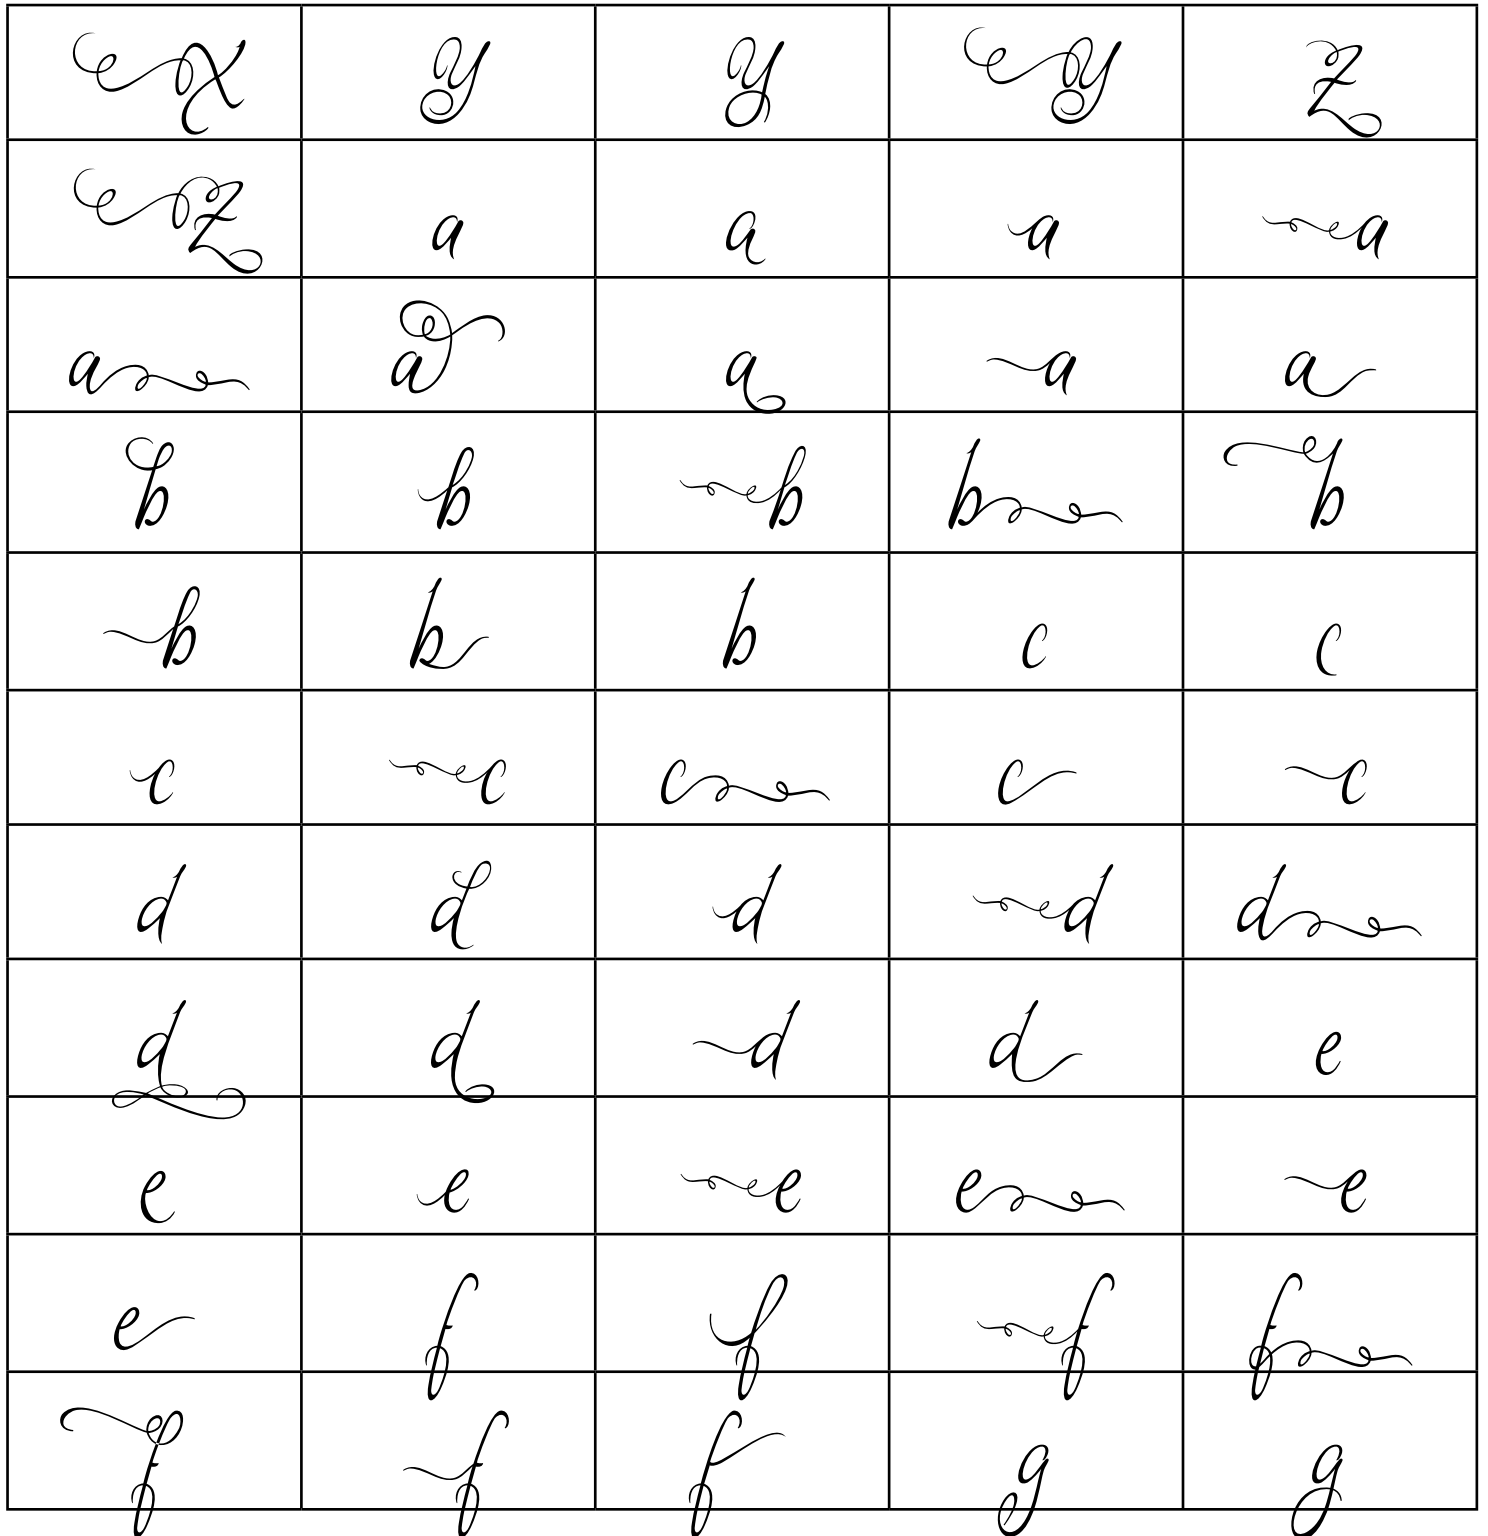 X y y y z
z a a a a
a a a a a
b b b b b
b b b c c
c c c c c
d d d d d
d d d d e
e e e e e
e f f f f
f f f g g